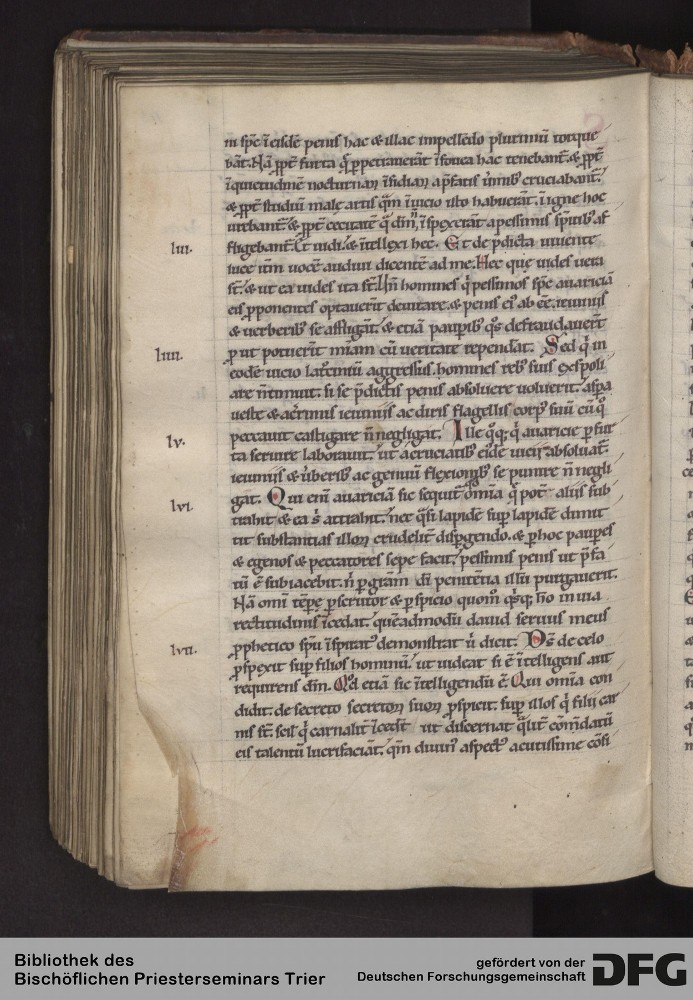 m spēc ī eisdē penis hac & illac impellēdo plurimū torque
bāt. Nā ꝓpt̄ furta q̄ ꝑpetrauerāt ī fouea hac tenebant̄. & ꝓpt̄
īquietudinē nocturnaꝝ īsidiaꝝ a p̄fatis ꝟmib; cruciabant̄.
& ꝓpt̄ studiū male artis quā ī uicio isto habuerāt. ī igne hoc
urebant̄. & ꝓpt̄ cecitatē q̄ dm̄ n̄ īspexerāt a pessimis sp̄itib; af
fligebant̄. Et uidi. & ītellexi hec. Et de p̄dicta uiuente
liii.
luce itm̄ uocē audiui dicentē ad me. Hec que uides uera
st̄. & ut ea uides ita st̄. Vn̄ homines q̄ pessimos spēc auariciā
eis ꝓponentes optauerīt deuitare. & penis eꝰ ab eē. ieiuniis
& uerberib; se affligāt. & etiā pauꝑib; q̄s defraudauerīt
ꝓ ut potuerīt miam̄ cū ueritate rependāt. Sed q̄ in
liiii.
eodē uicio latrociniū aggressus. homines reb; suis exspoli
are n̄ timuit. si se p̄dictis penis absoluere uoluerit. aspa
ueste & acrimis ieiuniis ac diris flagellis corpꝰ suū cū q̊
peccauit castigare n̄ negligat. Ille q̊q; q̄ auaricie ꝑ fur
lv.
ta seruire laborauit. ut a cruciatib; eidē uicii absoluat̄.
ieiuniis & ꝟberib; ac genuū flexionib; se punire n̄ negli
gat. Qui enī auariciā sic sequit̄ omīa q̄ pot̄ aliis sub
lvi.
trahit & ea s̄ attrahit. nec q̄si lapidē suꝑ lapidē dimit
tit substantias illoꝝ crudelit̄ disꝑgendo. & ꝑ hoc pauꝑes
& egenos & peccatores sepe facit. pessimis penis ut p̄fa
tū ē subiacebit. n̄ ꝑ grām dī penitētia illū purgauerit.
Nā omī tēpe ꝑscrutor & ꝑspicio quom̄ q̄sq; hō in uia
rectitudinis īcedat. quēadmodū dauid seruus meus
ꝓphetico spū īspiratꝰ demonstrat ū dicit. Ds̄ de celo
lvii.
ꝓspexit suꝑ filios hominū. ut uideat si ē ītelligens aut
requirens dm̄. Qd̄ etiā sic ītelligendū ē. Qui omīa con
didit. de secreto secretoꝝ suoꝝ ꝓspicit. suꝑ illos q̄ filii car
nis st̄. scil q̄ carnalit̄ īcedt̄ ut discernat qualit̄ cōmdatū
eis talentū lucrifaciāt. qm̄ diuinꝰ aspectꝰ acutissime cōsi
Bibliothek des
Bischöflichen Priesterseminars Trier
gefördert von der
Deutschen Forschungsgemeinschaft
DFG